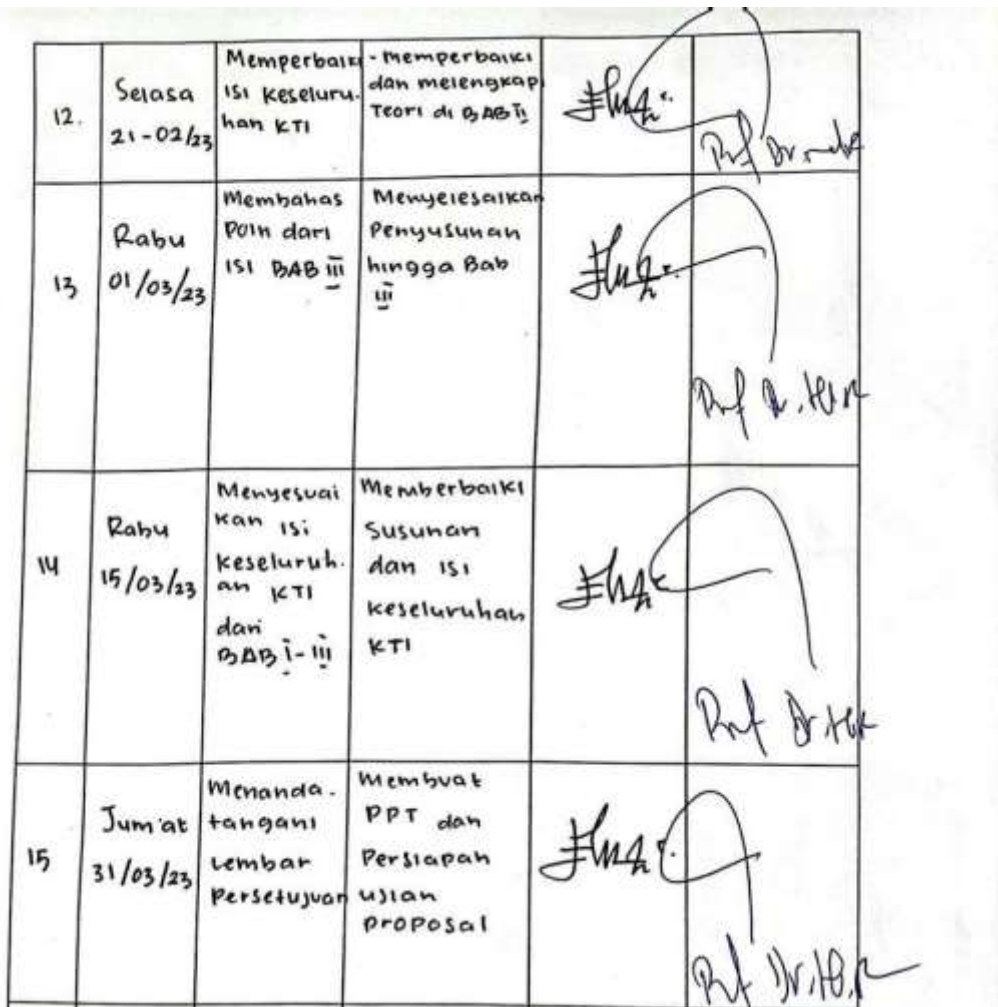 12.
Selasa
21-02/23
Memperbaiki
isi keseluru-
han KTI
- memperbaiki
dan melengkapi
Teori di BAB II
Prof Dr
13
Rabu
01/03/23
Membahas
Poin dari
isi BAB III
Menyelesaikan
Penyusunan
hingga Bab
III
Prof Dr.
14
Rabu
15/03/23
Menyesuai
kan isi
keseluruh.
an KTI
dari
BAB I-III
Memberbaiki
Susunan
dan isi
keseluruhan
KTI
Prof Dr.
15
Jum'at
31/03/23
Menanda-
tangani
Lembar
Persetujuan
Membuat
PPT dan
Persiapan
ujian
proposal
Prof Dr.